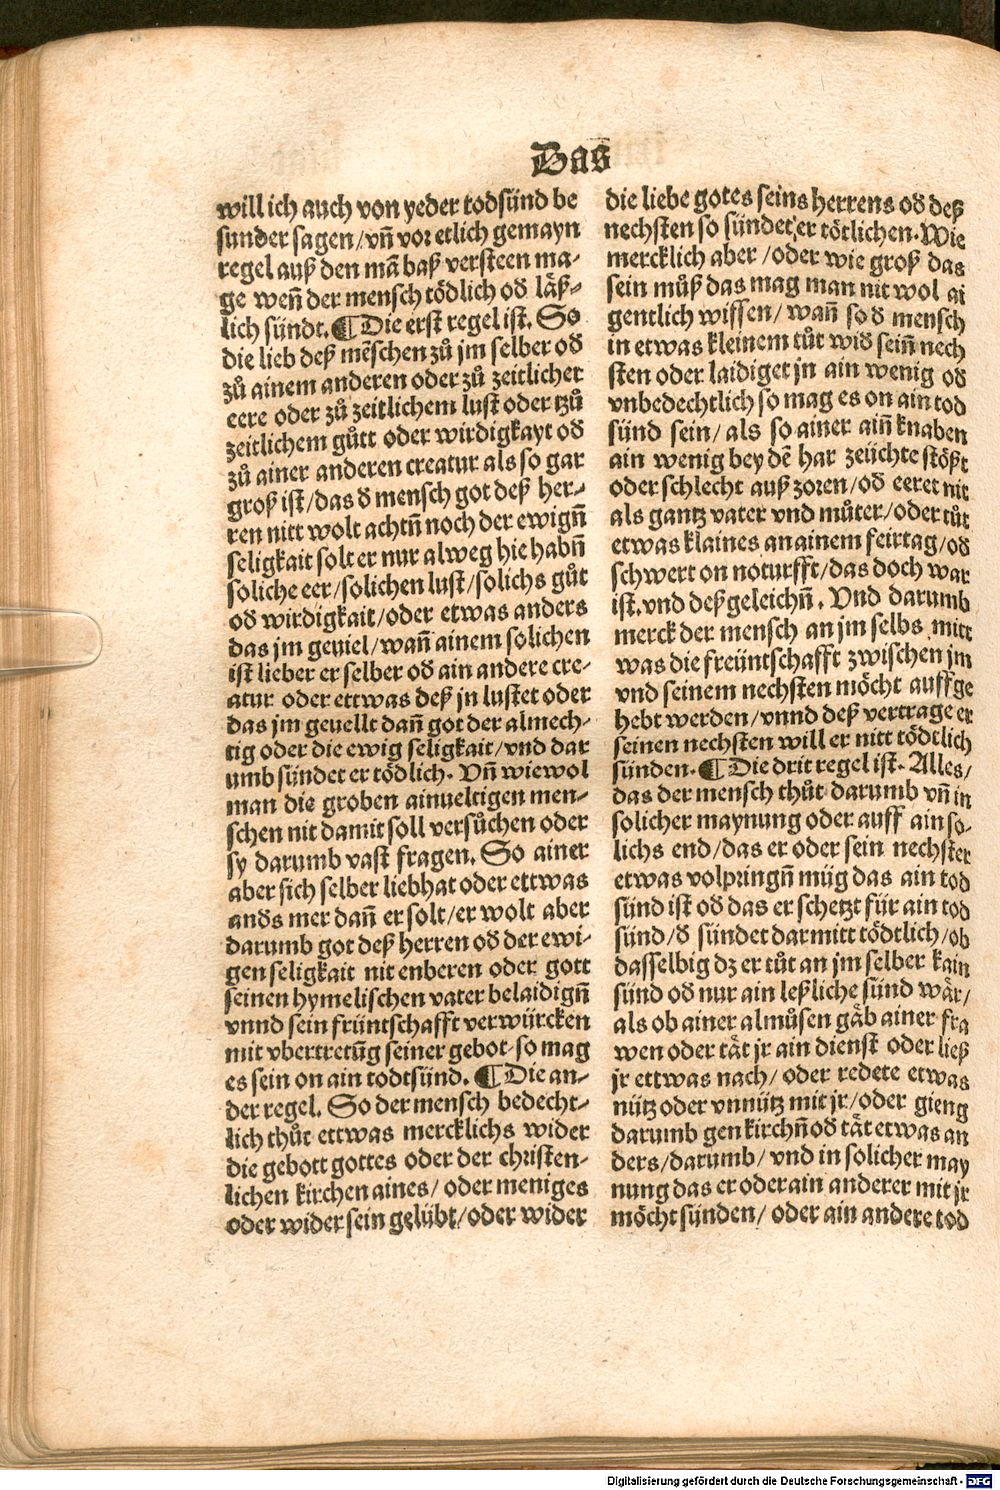 Das
will ich auch von yeder todsünd be
sunder sagen/vñ vor etlich gemayn
regel auß den mã baß versteen ma-
ge weñ der mensch tödlich od läß-
lich sündt. ¶ Die erst regel ist. So
die lieb deß mẽschen zů jm selber od
zů ainem anderen oder zů zeitlicher
eere oder zů zeitlichem lust oder tzů
zeitlichem gůtt oder wirdigkayt od
zů ainer anderen creatur als so gar
groß ist/das d mensch got deß her-
ren nitt wolt achtñ noch der ewigñ
seligkait solt er nur alweg hie habñ
soliche eer/solichen lust/solichs gůt
od wirdigkait/oder etwas anders
das jm geuiel/wañ ainem solichen
ist lieber er selber od ain andere cre-
atur oder ettwas deß jn lustet oder
das jm geuellt dañ got der almech-
tig oder die ewig seligkait/vnd dar
umb sündet er tödlich. Vñ wiewol
man die groben ainueltigen men-
schen nit damit soll versůchen oder
sy darumb vast fragen. So ainer
aber sich selber liebhat oder ettwas
ands mer dañ er solt/er wolt aber
darumb got deß herren od der ewi-
gen seligkait nit enberen oder gott
seinen hymelischen vater belaidigñ
vnnd sein früntschafft verwürcken
mit vbertretũg seiner gebot-so mag
es sein on ain todtsünd. ¶ Die an-
der regel. So der mensch bedecht-
lich thůt ettwas mercklichs wider
die gebott gottes oder der christen-
lichen kirchen aines/oder meniges
oder wider sein gelübt/oder wider
die liebe gotes seins herrens od deß
nechsten so sündet er tötlichen. Wie
mercklich aber/oder wie groß das
sein můß das mag man nit wol ai
gentlich wissen/wañ so d mensch
in etwas kleinem tůt wid seiñ nech
sten oder laidiget jn ain wenig od
vnbedechtlich so mag es on ain tod
sünd sein/als so ainer aiñ knaben
ain wenig bey dẽ har zeüchte stößt
oder schlecht auß zoren/od eeret nit
als gantz vater vnd můter/oder tůt
etwas klaines an ainem feirtag/od
schwert on noturfft/das doch war
ist. vnd deßgeleichñ. Vnd darumb
merck der mensch an jm selbs mitt
was die freüntschafft zwischen jm
vnd seinem nechsten möcht auffge
hebt werden/vnnd deß vertrage er
seinen nechsten will er nitt tödtlich
sünden. ¶ Die drit regel ist. Alles/
das der mensch thůt darumb vñ in
solicher maynung oder auff ain so-
lichs end/das er oder sein nechster
etwas volpringñ müg das ain tod
sünd ist od das er schetzt für ain tod
sünd/d sündet darmitt tödtlich/ob
dasselbig dz er tůt an jm selber kain
sünd od nur ain leßliche sünd wär/
als ob ainer almůsen gäb ainer fra
wen oder tät jr ain dienst oder ließ
jr ettwas nach/oder redete etwas
nütz oder vnnütz mit jr/oder gieng
darumb gen kirchñ od tät etwas an
ders/darumb/vnd in solicher may
nung das er oder ain anderer mit jr
möcht sünden/oder ain andere tod
Digitalisierung gefördert durch die Deutsche Forschungsgemeinschaft - DFG